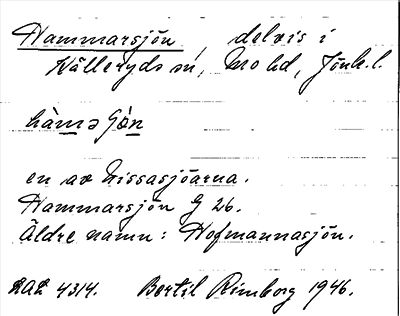 Hammarsjön, delvis i
Källeryds sn, Mo hd, Jönk. l.
hàmaʃǿn
en av Nissasjöarna.
Hammarsjön G 26.
Äldre namn: Hofmannasjön.
4314. Bertil Rimborg 1946.